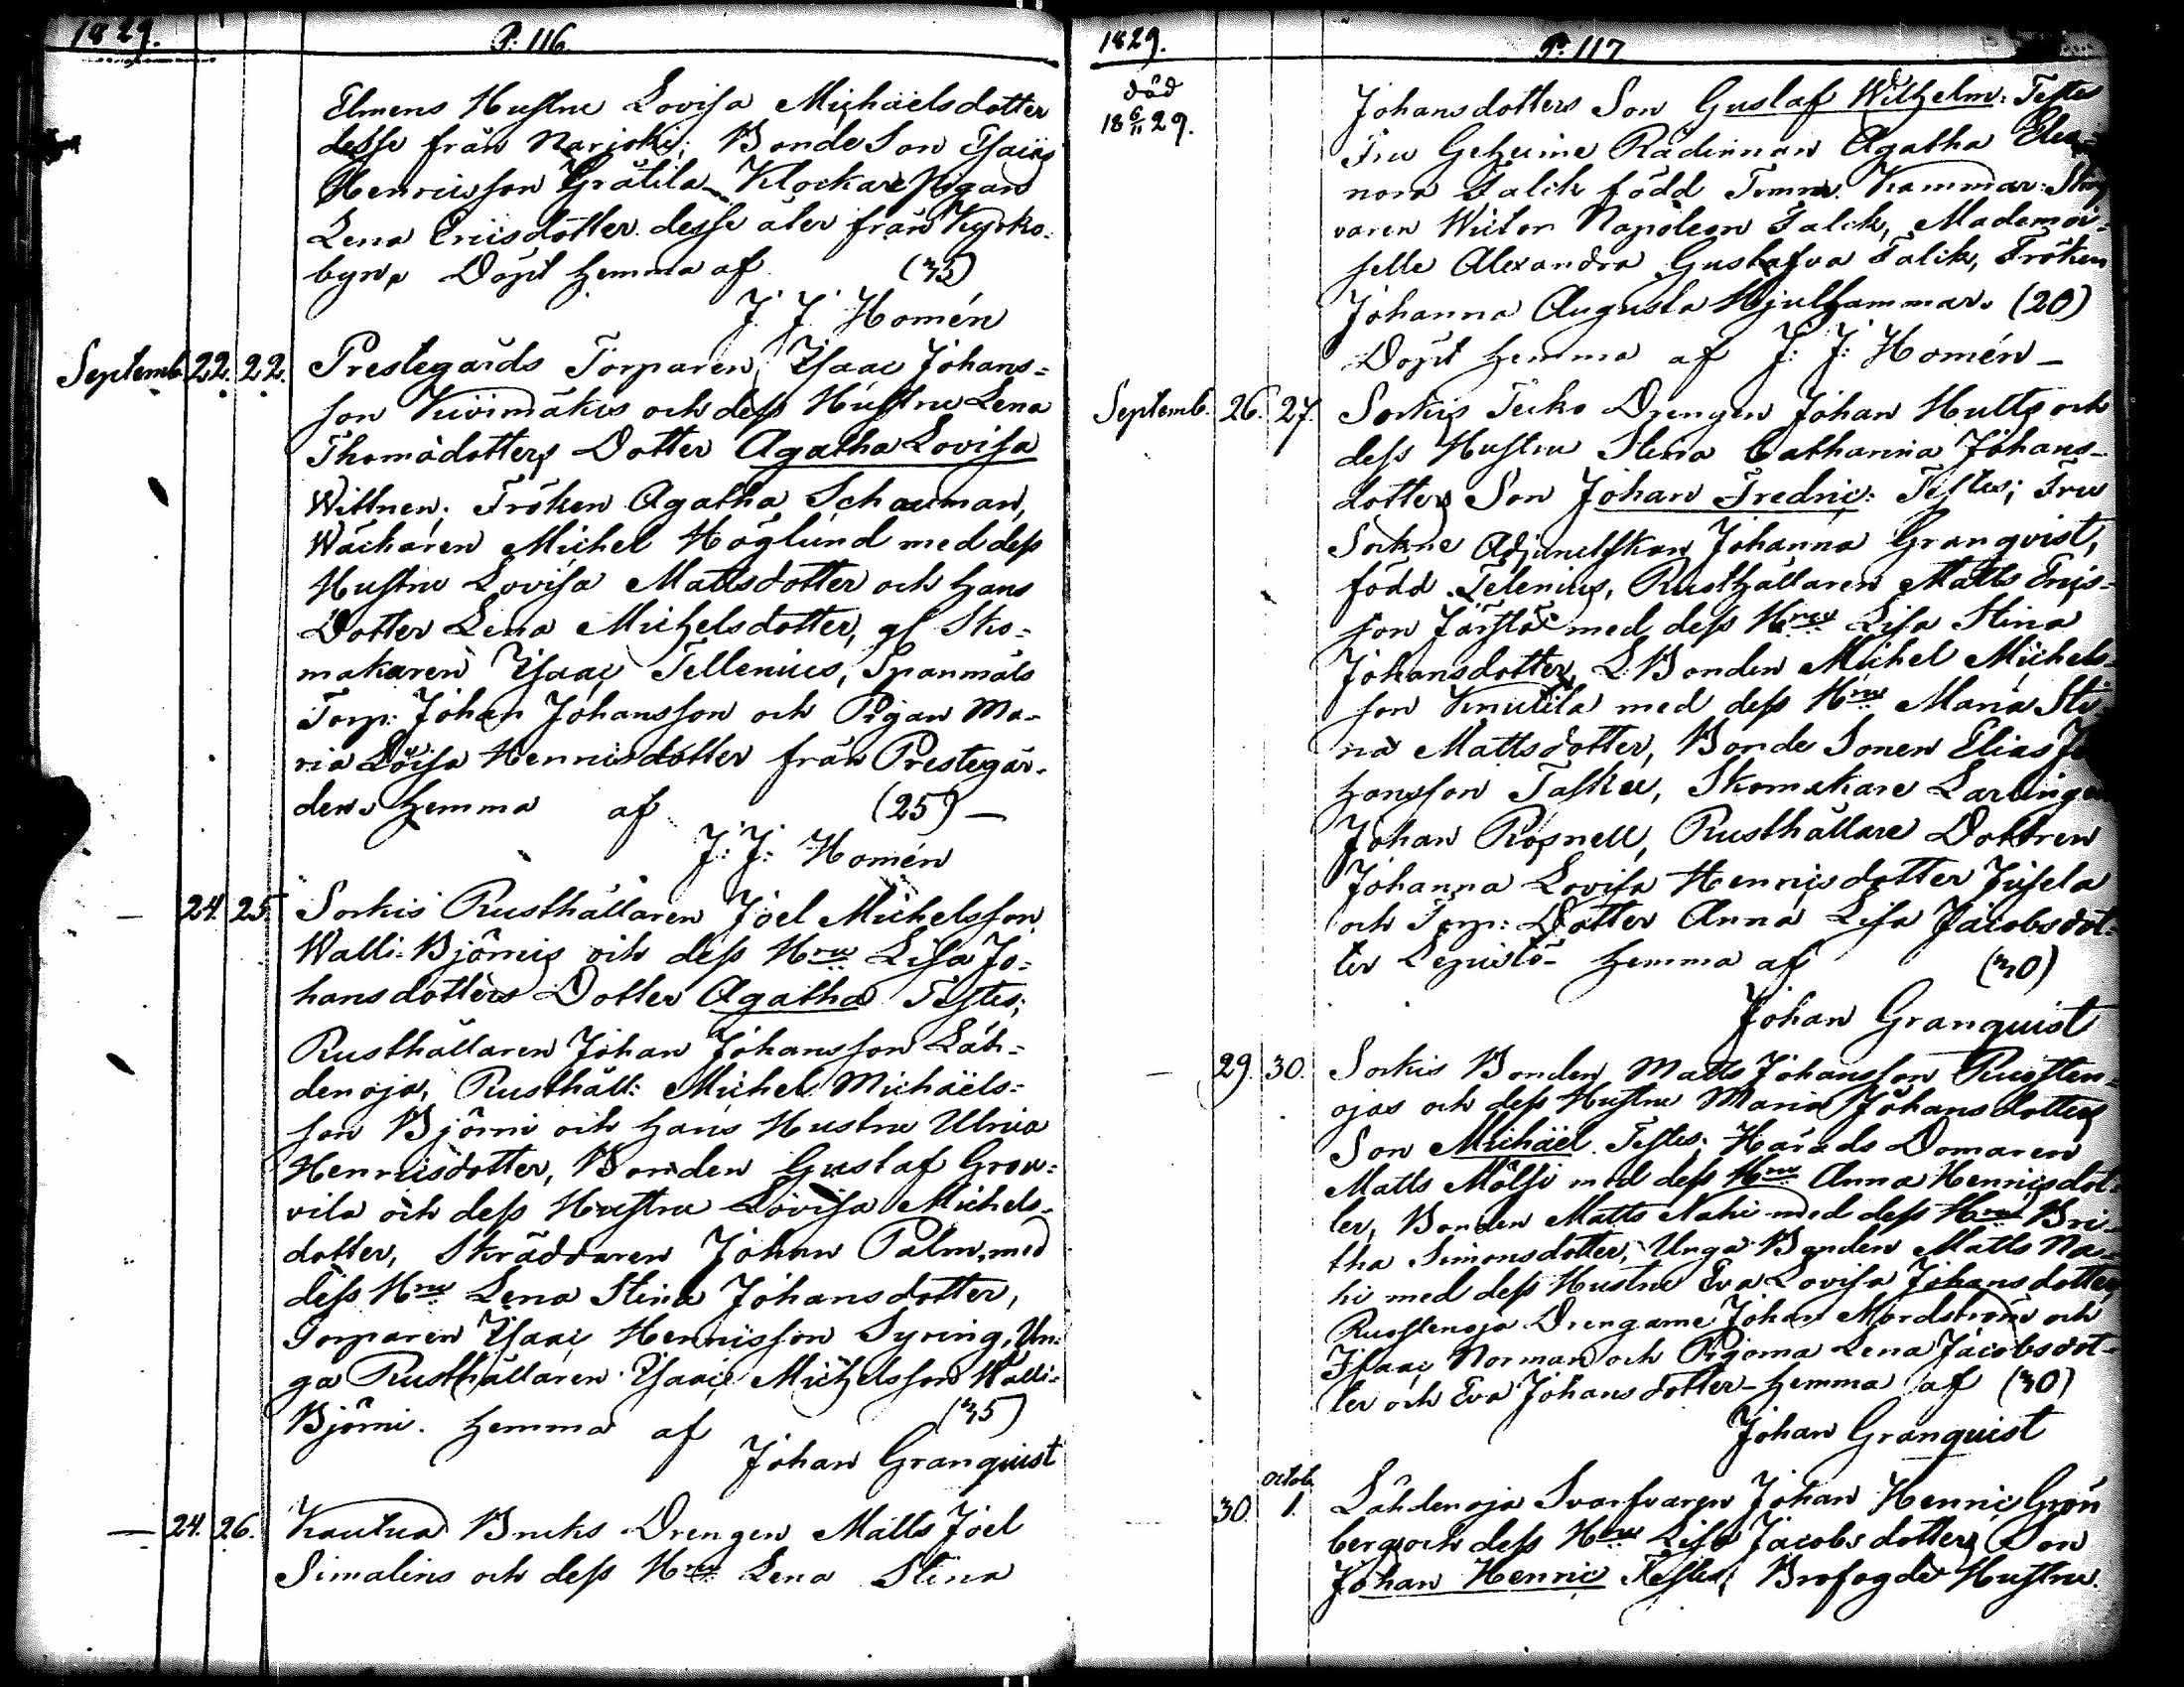 1829.
P. 116
Elmens Hustru Lovisa Michaëlsdotter
desse från Narjoki; Bonde Son Esaias
Henricsson Grätila, Klockare Pigan
Lena Ericsdotter desse åter från Kyrko-
byn. Döpt hemma af (35)
J. J. Homén
Septemb. 22. 22. Prestegårds Torparen, Isaac Johans=
son Kivimäkis och dess Hustru Lena
Thomædotters Dotter Agatha Lovisa
Wittnen: Fröken Agatha Schauman,
Wäckaren Michel Höglund med dess
Hustru Lovisa Mattsdotter och hans
Dotter Lena Michelsdotter, gl Sko=
makaren Isaac Tellenius, Spanmåls
Torp: Johan Johansson och Pigan Ma-
ria Lovisa Henricsdotter från Prestegår-
den. hemma af (25) —
J: J: Homén
— 24. 25. Sorkis Rusthållaren Joel Michelsson
Walli-Björnis och dess Hru Lisa Jo=
hansdotters Dotter Agatha Testes;
Rusthållaren Johan Johansson Läh=
denoja, Rusthåll: Michel Michaëls=
son Björni och hans Hustru Ulrica
Henricsdotter, Bonden Gustaf Gron=
vila och dess Hustru Lovisa Michels-
dotter, Skräddaren Johan Palm, med
dess Hru Lena Stina Johansdotter,
Torparen Isaac Henricsson Syring, Un:
ga Rusthållaren Isaac Michelsson Walli=
Björni. hemma af (35)
Johan Granquist
— 24. 26. Kautua Bruks Drengen Matts Joel
Simalins och dess Hru Lena Stina
1829.
P. 117
död
18 6/11 29.
Johansdotters Son Gustaf Wilhelm: Testes
Fru Geheime Rådinnan Agatha Elea=
nora Falck född Kammar-
varen Victor Napoleon Falck, Mademoi=
selle Alexandra Gustafva Falck, Fröken
Johanna Augusta Hjulhammar. (20)
Döpt hemma af J: J: Homén —
Septemb. 26. 27. Sorkis Drengen Johan Hutts och
dess Hustru Stina Catharina Johans-
dotters Son Johan Fredric: Testes; Fru
Sockne Adjunctskan Johanna Granqvist,
född Telenius, Rusthållaren Matts Erics-
son med dess Hru Lisa Stina
Johansdotter, L. Bonden Michel Michels-
son Knutila med dess Hru Maria Sti-
na Mattsdotter, Bonde Sonen Elias Jo
hansson Tasku, Skomakare Lärlingen
Johan Rosnell, Rusthållare Dottren
Johanna Lovisa Henricsdotter Jusela
och Torp: Dotter Anna Lisa Jacobsdot=
ter Lepistö - hemma af (30)
Johan Granquist
— 29. 30. Sorkis Bonden Matts Johansson Ruosten=
ojas och dess Hustru Maria Johansdotters
Son Michäel. Testes: Härads Domaren
Matts Mälsi med dess Hru Anna Henricsdot=
ter, Bonden Matts Nahi med dess Hru Bri-
tha Simonsdotter, Unga Bonden Matts Na-
hi med dess Hustru Eva Lovisa Johansdotter,
Ruostenoja Drengarne Johan Nordström och
Isaac Norman och Pigorna Lena Jacobsdot-
ter och Eva Johansdotter - hemma af (30)
Johan Granquist
octob.
— 30. 1. Lähdenoja Svarfvaren Johan Henric Grön
bergs och dess Hru Lisa Jacobsdotters Son
Johan Henric Testes; Brofogde Hustru